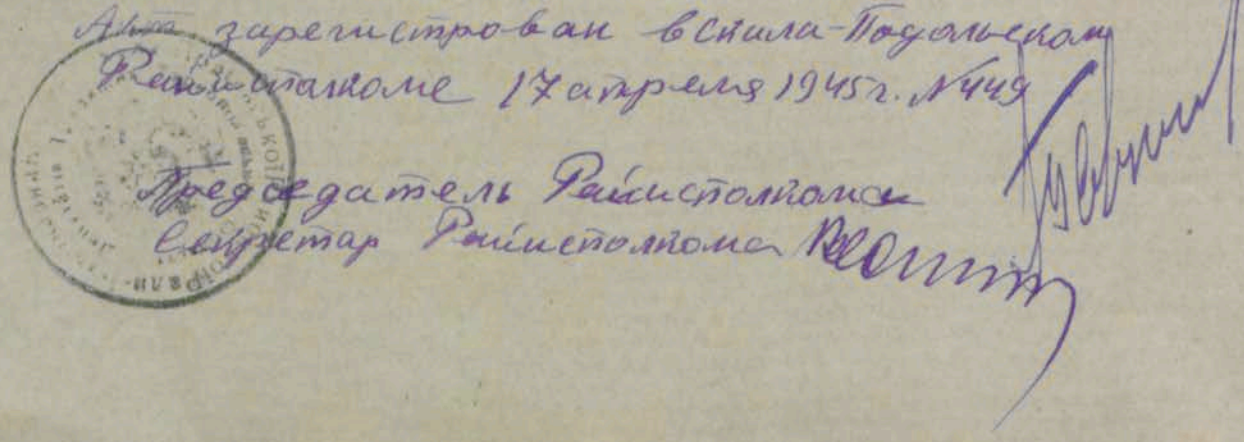 Акт зарегистрован в Скила-Подольском
Райисполкоме 17 апреля 1945г. №449
Председатель Райисполкома
Секретар Райисполкома